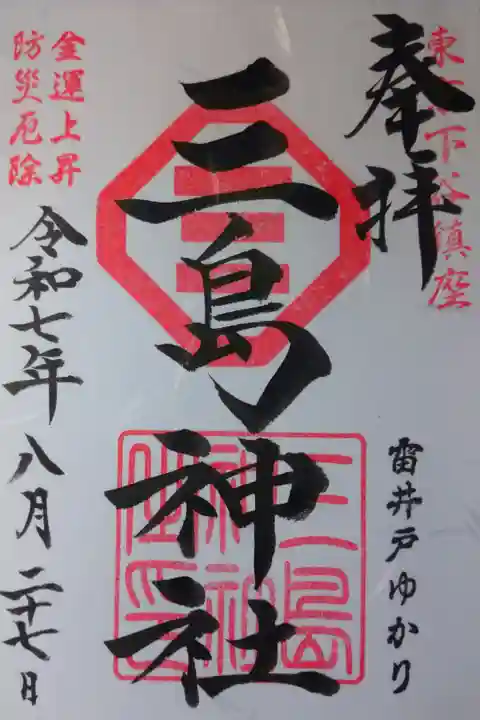 奉拝
東京下谷鎮座
雷井戸ゆかり
三島神社
三島
神社
金運上昇
防災厄除
令和七年八月二十七日